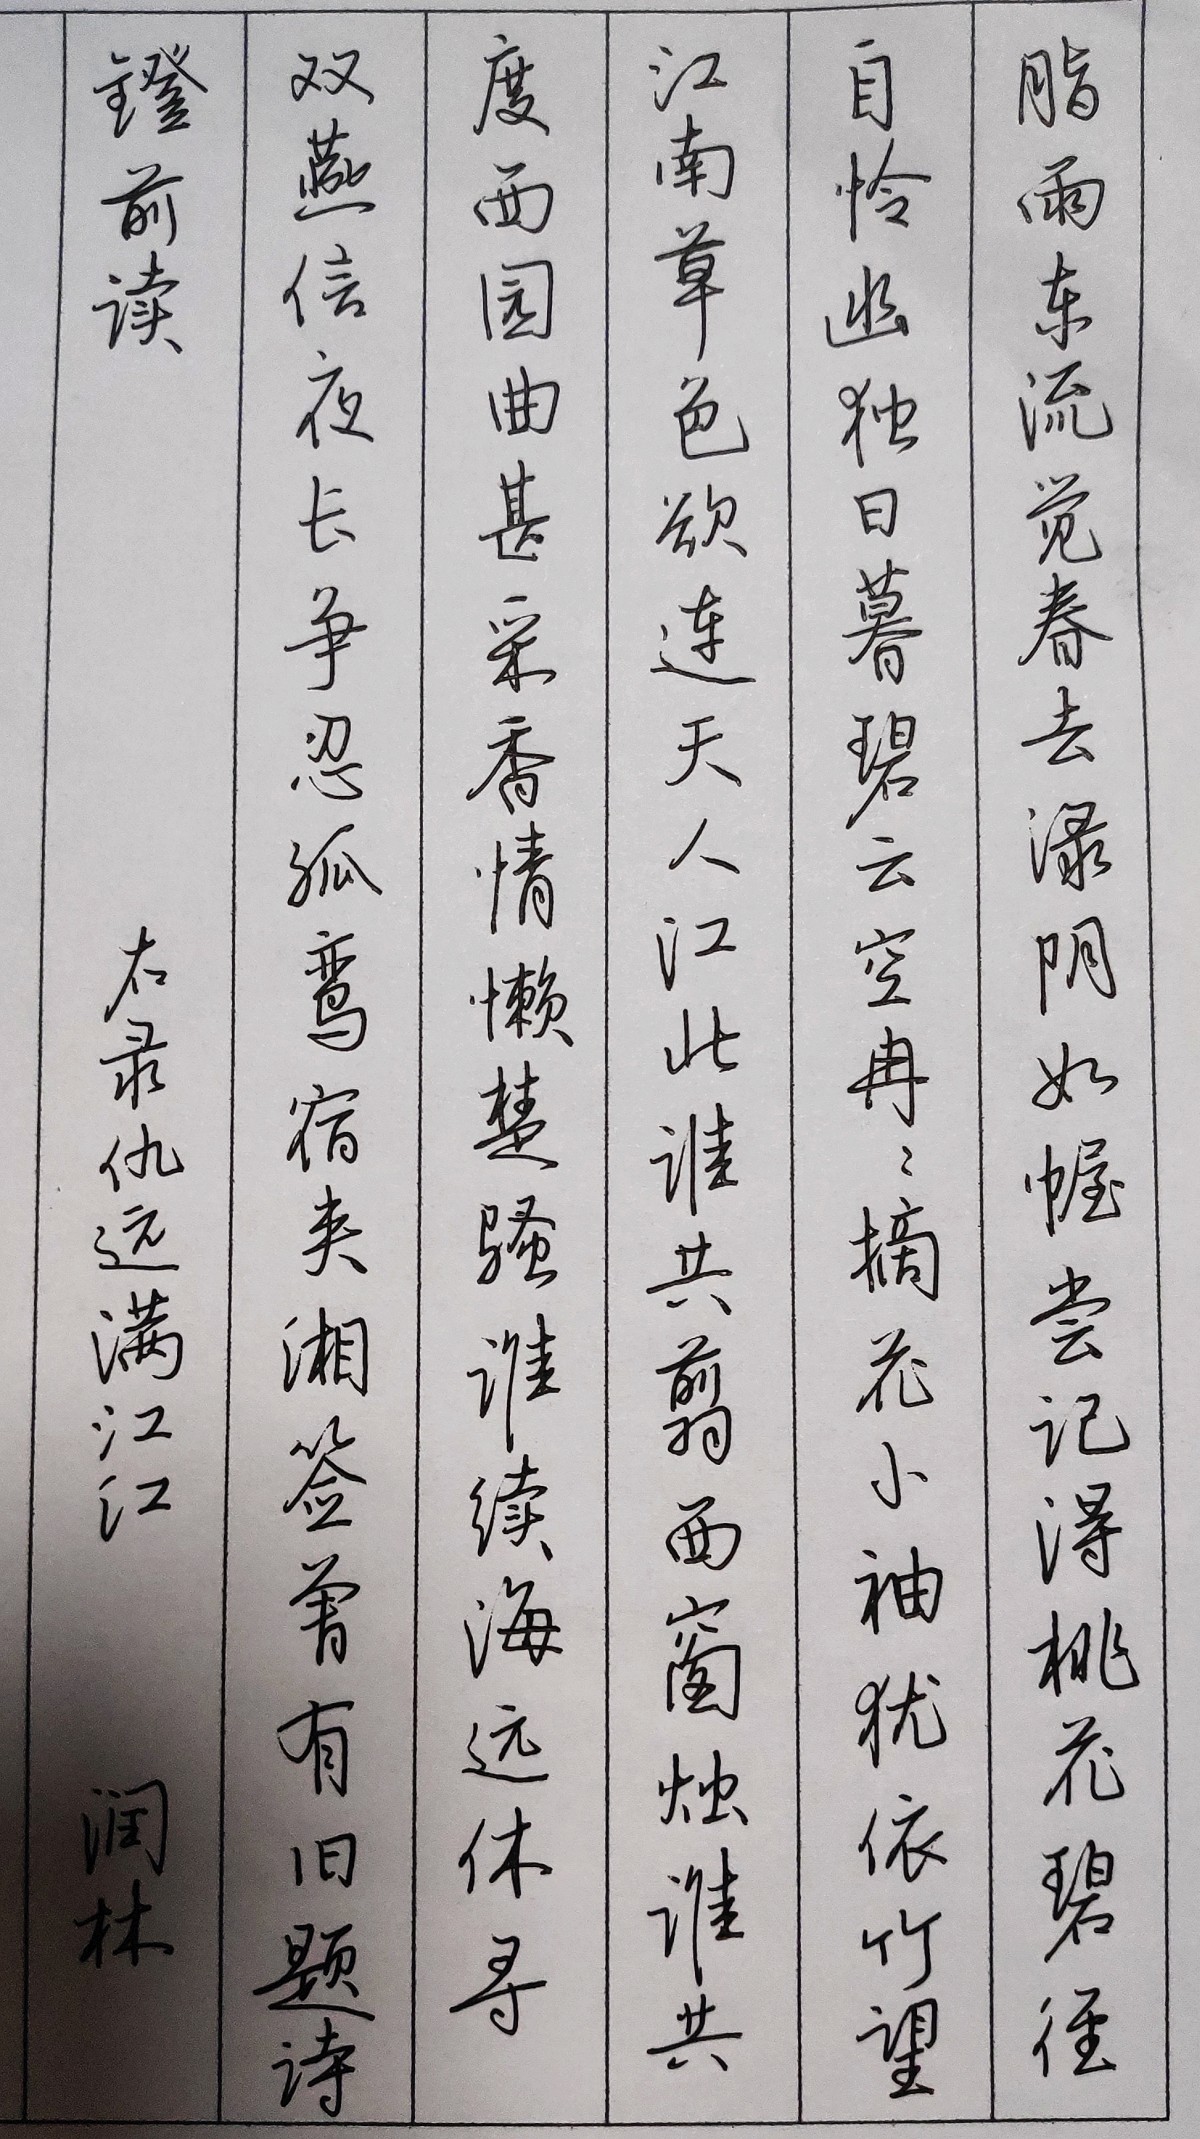 脂雨东流觉春去渌阴如幄尝记得桃花碧径
自怜幽独日暮碧云空冉〻摘花小袖犹依竹望
江南草色欲连天人江北谁共翦西窗烛谁共
度西园曲甚采香情懒楚骚谁续海远休寻
双燕信夜长争忍孤鸾宿夹湘签曾有旧题诗
镫前读
右录仇远满江江
润林